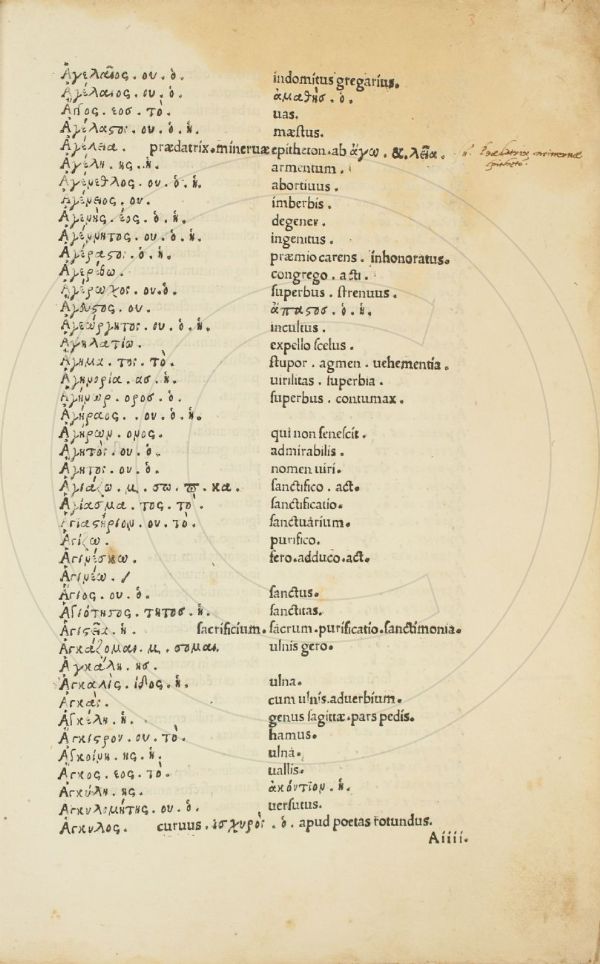 Ἀγελαῖος . ου . ὁ . indomitus gregarius.
Ἀγέλαιος . ου . ὁ . ἀμαθὴς . ὁ .
Ἄγος . εος . τὸ . uas.
Ἀγέλαστος . ου . ὁ . ἡ . mæstus.
Ἀγέλεια . prædatrix . mineruæ epitheton . ab ἄγω . & . λεία .
Ἀγέλη . ης . ἡ . armentum .
ου . ὁ . ἡ . abortiuus .
Ἀγένειος . ου . imberbis .
Ἀγενὴς . έος . ὁ . ἡ . degener .
Ἀγέννητος . ου . ὁ . ἡ . ingenitus .
Ἀγέραστος . ὁ . ἡ . præmio carens . inhonoratus.
congrego . acti .
Ἀγέρωχος . ου . ὁ . superbus . ſtrenuus .
Ἄγευστος . ου . ἄπαστος . ὁ . ἡ .
Ἀγεώργητος . ου . ὁ . ἡ . incultus .
Ἀγηλατίω . expello ſcelus .
Ἄγημα . τος . τὸ . ſtupor . agmen . uehementia.
Ἀγηνορία . ας . ἡ . uirilitas . ſuperbia .
Ἀγήνωρ . ορος . ὁ . ſuperbus . contumax .
Ἀγήραος . . ου . ὁ . ἡ .
Ἀγήρων . ονος . qui non ſeneſcit .
Ἀγητὸς . ου . ὁ . admirabilis .
Ἄγητος . ου . ὁ . nomen uiri .
Ἁγιάζω . μ . σω . π . κα . ſanctifico . act.
Ἁγίασμα . τος . τὸ . ſanctificatio.
Ἁγιαστήριον . ου . τὸ . ſanctuarium.
Ἁγίζω . purifico.
Ἀγινέσκω . fero . adduco . act.
Ἀγινέω . /
Ἅγιος . ου . ὁ . ſanctus.
Ἁγιότησος . τητος . ἡ . ſanctitas.
Ἁγιστεία . ἡ . sacrificium . ſacrum . purificatio . ſanctimonia.
Ἀγκάζομαι . μ . σομαι . ulnis gero.
Ἀγκάλη . ης .
Ἀγκαλὶς . ίδος . ἡ . ulna.
Ἀγκὰς . cum ulnis . aduerbium.
Ἀγκύλη . ἡ . genus ſagittæ . pars pedis.
Ἄγκιστρον . ου . τὸ . hamus.
Ἀγκοίνη . ης . ἡ . ulna.
Ἄγκος . εος . τὸ . uallis.
Ἀγκύλη . ης . ἡ . ἀκόντιον . ἡ .
Ἀγκυλομήτης . ου . ὁ . uerſutus.
Ἀγκύλος . curuus . ἰσχυρὸς . ὁ . apud poetas rotundus.
Aiiii.
Prædatrix mineruæ
epitheto